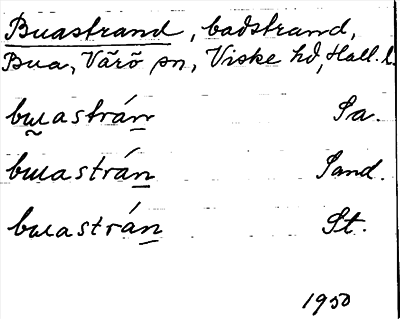 Buastrand, badstrand,
Bua, Värö sn, Viske hd, Hall. l.
bɯastrán Sa.
bɯastrán Sand.
bɯastrán St.
1950